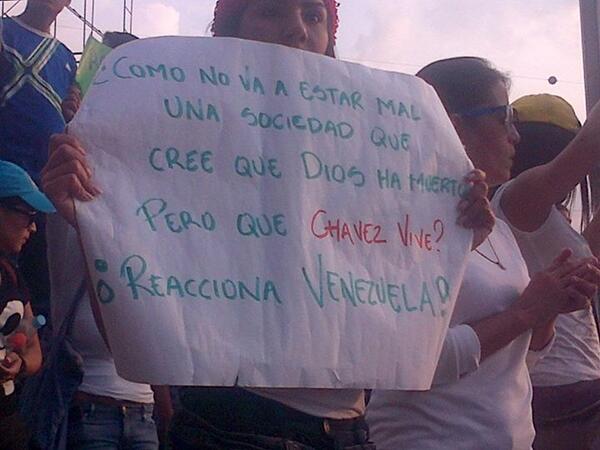 ¿COMO NO VA A ESTAR MAL
UNA SOCIEDAD QUE
CREE QUE DIOS HA MUERTO
PERO QUE CHAVEZ VIVE?
¡REACCIONA VENEZUELA!